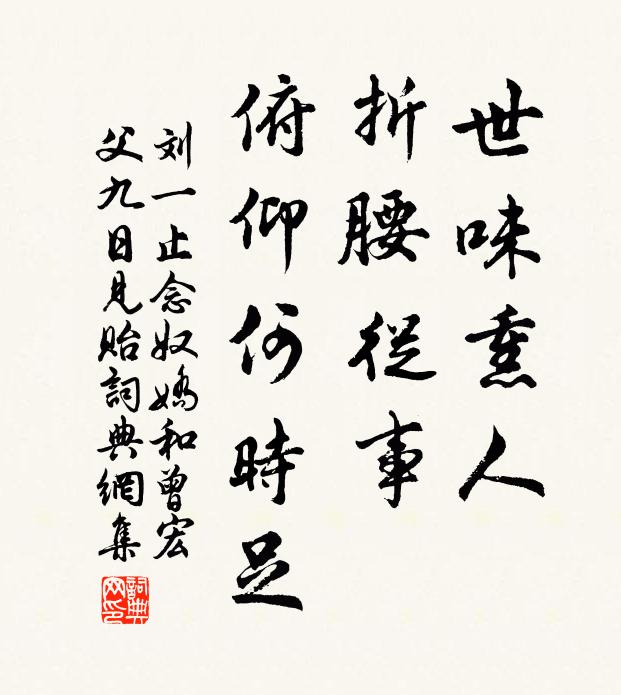 世味熏人
折腰從事
俯仰何時足
刘一止念奴嬌和曾宏
父九日見貽詞典網集
詞典網印